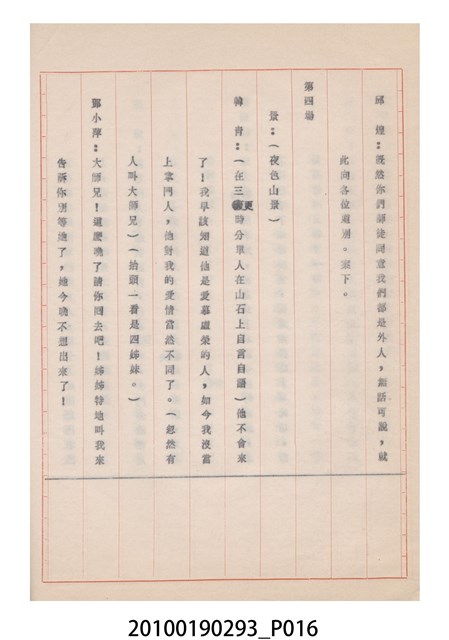 邱　煌：既然你們師徒同意我們都是外人，無話可說，就
此向各位道別。　下。
第四場
景：（夜色山景）
韓　青：（在三更時分單人在山石上自言自語）他不會來
了！我早該知道他是愛慕虛榮的人，如今我沒當
上掌門人，他對我的愛情當然不同了。（忽然有
人叫大師兄）（抬頭一看是四姊妹。）
鄧小萍：大師兄！這麼晚了請你回去吧！姊姊特地叫我來
告訴你別等她了，她今晚不想出來了！
20100190293_P016